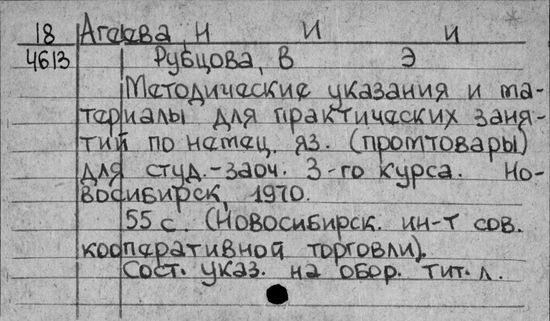 18 Агаева, Н И И
4613 Рубцова, В Э
Методические указания и ма-
териалы для практических заня-
тий по немец. яз. (промтовары)
для студ.-заоч. 3-го курса. Но-
восибирск, 1970.
55 с. (Новосибирск. ин-т сов.
кооперативной торговли).
Сост. указ. на обор. тит. л.